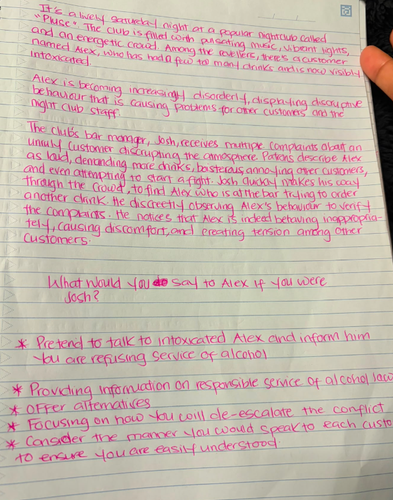 It's a lively saturday night at a popular nightclub called
"Pluse". The club is filled with pulsating music, vibrant lights,
and an energetic crowd. Among the revellers, there's a customer
named Alex, who has had a few too many drinks and is now visibly
intoxicated.
Alex is becoming increasingly disorderly, displaying disruptive
behaviour that is causing problems for other customers and the
night club staff.
The clubs bar manager, Josh, receives multiple complaints about an
unruly customer disrupting the atmosphere. Patrons describe Alex
as loud, demanding more drinks, boisterous annoying other customers,
and even attempting to start a fight. Josh quickly makes his way
through the crowd, to find Alex who is at the bar trying to order
another drink. He discreetly observing Alex's behaviour to verify
the complaints. He notices that Alex is indeed behaving inappropria-
tely, causing discomfort, and creating tension among other
customers.
What would you do say to Alex if you were
Josh?
* Pretend to talk to intoxicated Alex and inform him
you are refusing service of alcohol
* Providing information on responsible service of alcohol laws
* Offer alternatives
* Focusing on how you will de-escalate the conflict
* Consider the manner you would speak to each custo
to ensure you are easily understood.